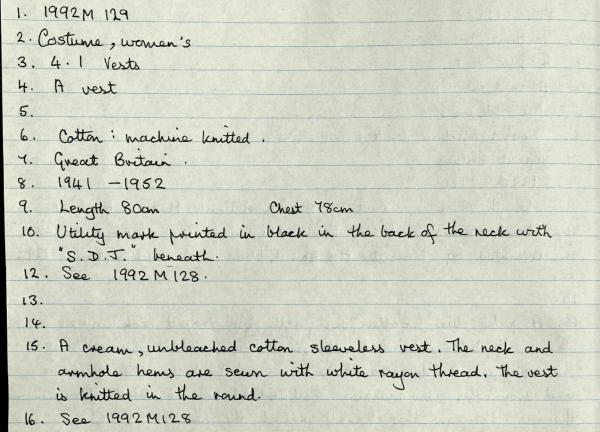 1. 1992M 129
2. Costume, women's
3. 4.1 Vests
4. A vest
5.
6. Cotton: machine knitted.
7. Great Britain.
8. 1941 - 1952
9. Length 80cm Chest 78cm
10. Utility mark printed in black in the back of the neck with
"S.D.J." beneath.
12. See 1992M128.
13.
14.
15. A cream, unbleached cotton sleeveless vest. The neck and
armhole hems are sewn with white rayon thread. The vest
is knitted in the round.
16. See 1992M128